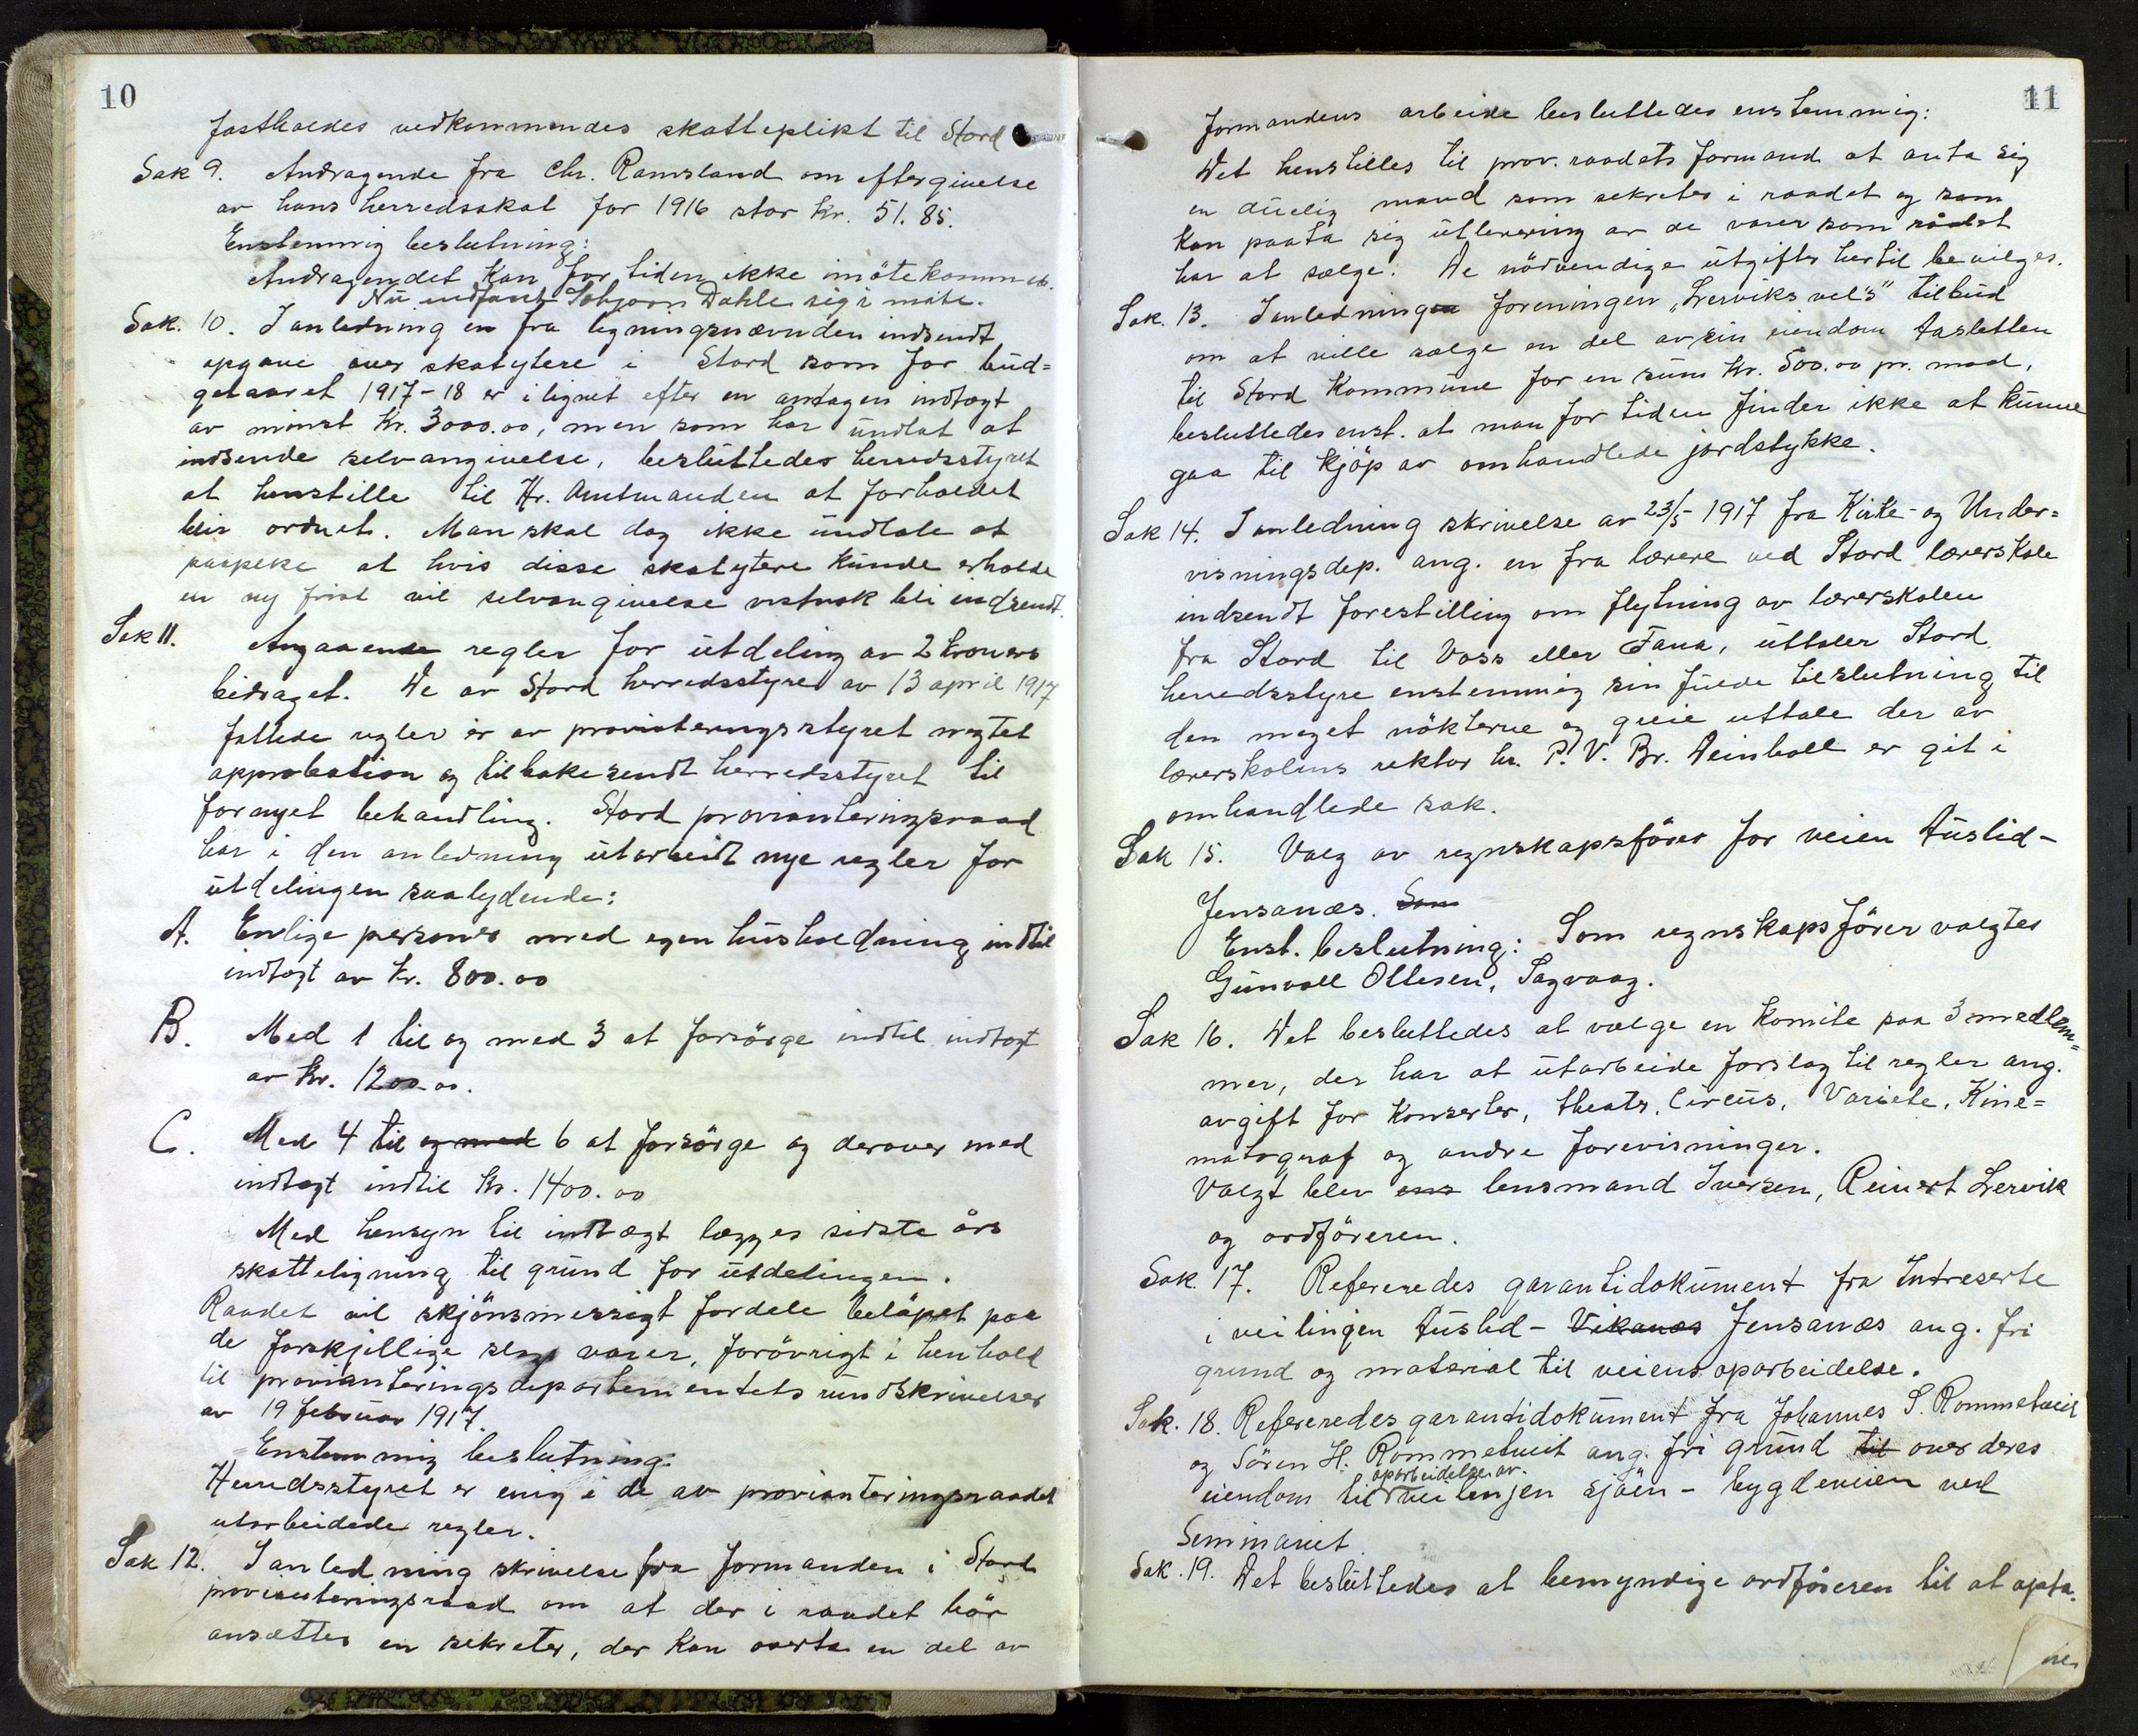 10
fastholdes vedkommendes skatteplikt til Stord
Sak 9. Andragende fra Chr. Ramsland om eftergivelse
av hans herredsskat for 1916 stor kr. 51.85.
Enstemmig beslutning:
Andragendet kan for tiden ikke imötekommes.
Nu indfant Torbjörn Dahle sig i møte.
Sak. 10. I anledning en fra ligningsnævnden indsendt
opgave over skatytere i Stord som for bud=
getaaret 1917-18 er ilignet efter en antagen indtægt
av minst kr. 3000.00, men som har undlat at
indsende selvangivelse, besluttedes herredsstyret
at henstille til Hr. Amtmanden at forholdet
blir ordnet. Man skal dog ikke undlate at
paapeke at hvis disse skatytere kunde erholde
en ny frist vil selvangivelse vistnok bli indsendt.
Sak 11. Angaaende regler for utdeling av 2 kroners
bidraget. De av Stord herredsstyre av 13 april 1917
fattede regler er av provianteringsstyret negtet
approbation og tilbakesendt herredsstyret til
fornyet behandling. Stord provianteringsraad
har i den anledning utarbeidt nye regler for
utdelingen saalydende:
A. Enslige personer med egen husholdning indtil
indtægt av kr. 800.00
B. Med 1 til og med 3 at forsörge indtil indtægt
av kr. 1200.00.
C. Med 4 til og med 6 at forsörge og derover med
indtægt indtil kr. 1400.00
Med hensyn til indtægt lægges sidste års
skatteligning til grund for utdelingen.
Raadet vil skjönsmessigt fordele belöpet paa
de forskjellige slags varer, forövrigt i henhold
til provianteringsdepartementets rundskrivelser
av 19 februar 1917.
Enstemmig beslutning:
Herredsstyret er enig i de av provianteringsraadet
utarbeidede regler.
Sak 12. I anledning skrivelse fra formanden i Stord
provianteringsraad om at der i raadet bör
ansættes en sekretær, der kan overta en del av
11
formandens arbeide besluttedes enstemmig:
Det henstilles til prov. raadets formand at anta sig
en duelig mand som sekretær i raadet og som
kan paata sig utlevering av de varer som rådet
har at sælge. De nödvendige utgifter hertil bevilges.
Sak. 13. I anledningen foreningen "Lerviks vel's" tilbud
om at ville sælge en del av sin eiendom Aasletten
til Stord Kommune for en sum kr. 500.00 pr. maal,
besluttedes enst. at man for tiden finder ikke at kunne
gaa til kjöp av omhandlede jordstykke.
Sak 14. I anledning skrivelse av 23/5 1917 fra Kirke- og Under=
visningsdep. ang. en fra lærere ved Stord lærerskole
indsendt forestilling om flytning av lærerskolen
fra Stord til Voss eller Fana, uttaler Stord
herredsstyre enstemmig sin fulde tilslutning til
den meget nökterne og greie uttale der av
lærerskolens rektor hr. P. V. Br. Deinboll er git i
omhandlede sak.
Sak 15. Valg av regnskapsförer for veien Auslid-
Jensanæs. Som
Enst. beslutning: Som regnskapsförer valgtes
Gunvall Ollesen, Sagvaag.
Sak 16. Det besluttedes at vælge en komite paa 3 medlem=
mer, der har at utarbeide forslag til regler ang.
avgift for konserter, theatr, Circus, Variete, Kine=
matograf og andre forevisninger.
Valgt blev ens lensmand Iversen, Reinert Lervik
og ordföreren.
Sak. 17. Refereredes garantidokument fra Intreserte
i veilingen Auslid- Vikanes Jensanæs ang. fri
grund og material til veiens oparbeidelse.
Sak. 18. Refereredes garantidokument fra Johannes S. Rommetveit
og Sören H. Rommetveit ang. fri grund til over deres
oparbeidelse av
eiendom til veilinjen sjöen - bygdeveien ved
Seminariet.
Sak. 19. Det besluttedes at bemyndige ordföreren til at opta